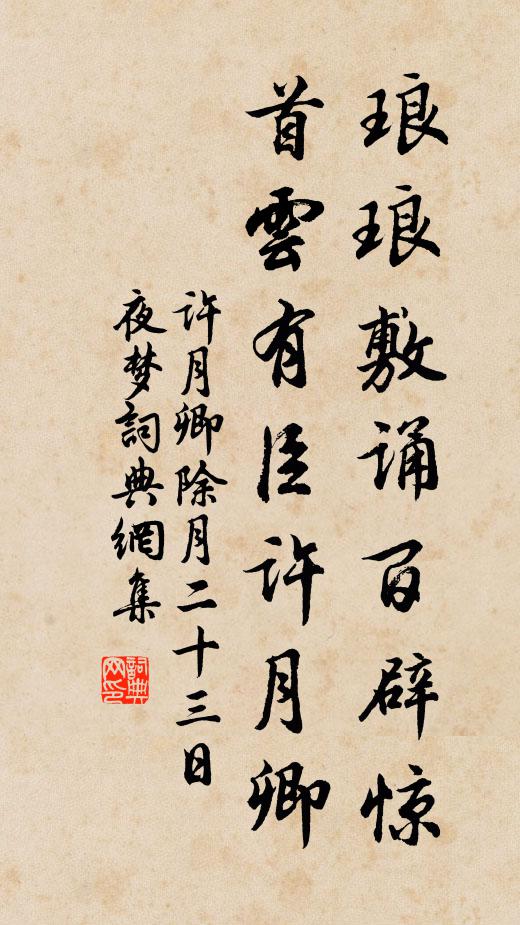 琅琅敷诵百辟惊
首雲有臣許月卿
許月卿除月二十三日
夜梦詞典網集
詞典
网印